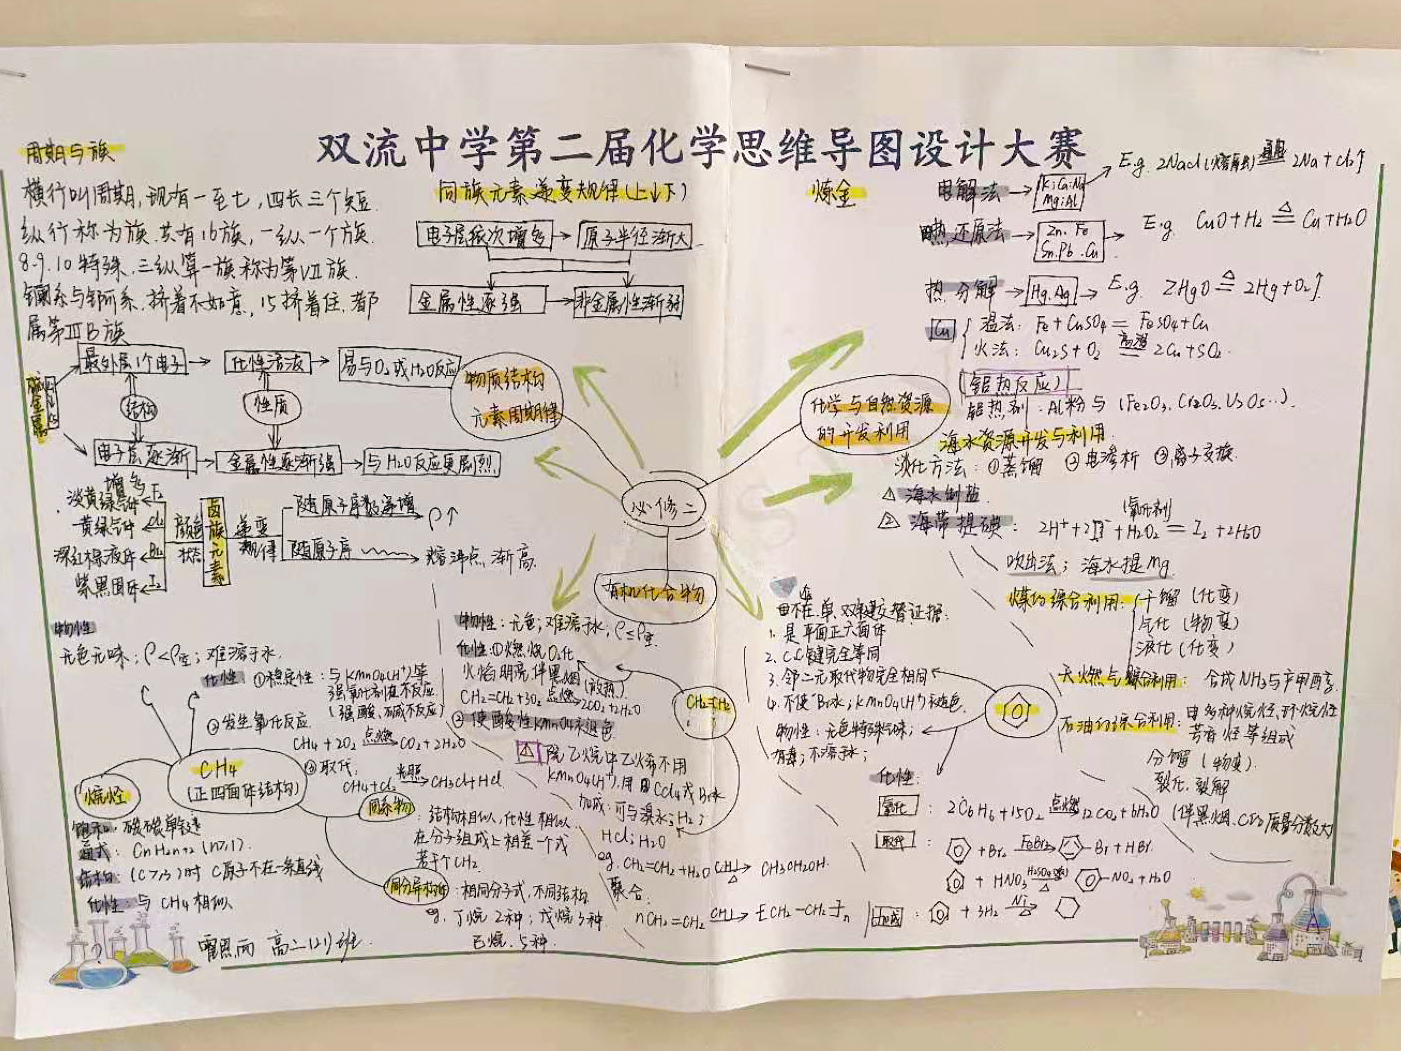 双流中学第二届化学思维导图设计大赛
周期与族
横行叫周期,现有一至七,四长三个短.
纵行称为族.共有16族,一纵一个族.
8.9.10特殊.三纵算一族称为第VII族.
镧系与锕系,挤着不如意,15挤着住,都
属第ⅢB族
同族元素递变规律(上↓下)
电子层依次增多→原子半径渐大
金属性逐强→非金属性渐弱
碱金属
最外层1个电子→化性活泼→易与O₂或H₂O反应
结构
性质
电子层逐渐→金属性逐渐强→与H₂O反应更剧烈
增多
淡黄绿气体 F₂
黄绿气体 Cl₂
深红棕液体 Br₂
紫黑固体 I₂
颜色
状态
卤族元素
递变
规律
随原子序数递增→ρ↑
随原子序→熔沸点渐高
物质结构
元素周期律
必修二
有机化合物
化学与自然资源
的开发利用
炼金
电解法→K;Ca;Na
Mg;Al
E.g. 2NaCl(熔融) 通电 2Na+Cl₂↑
热还原法→Zn. Fe
Sn.Pb.Cu
E.g. CuO+H₂ △ Cu+H₂O
热分解→Hg.Ag→E.g. 2HgO △ 2Hg+O₂↑
Cu
湿法: Fe+CuSO₄=FeSO₄+Cu
火法: Cu₂S+O₂ 高温 2Cu+SO₂
(铝热反应)
铝热剂:Al粉与(Fe₂O₃.Cr₂O₃.V₂O₅..).
海水资源开发与利用
淡化方法:①蒸馏 ②电渗析 ③离子交换
△海水制盐
②海带提碘:2H⁺+2I⁻+H₂O₂=I₂+2H₂O
(氧化剂)
吹出法;海水提Mg
煤的综合利用:
干馏(化变)
气化(物变)
液化(化变)
天燃气综合利用:合成NH₃与产甲醇
石油的综合利用:由多种烷烃,环烷烃
芳香烃等组成
分馏(物变)
裂化.裂解
物性
无色无味;ρ<ρ空;难溶于水.
化性①稳定性:与KMnO₄(H⁺)等
强氧化剂值不反应.
(强酸、碱不反应)
②发生氧化反应.
CH₄+2O₂ 点燃 CO₂+2H₂O
③取代.
CH₄+Cl₂ 光照 CH₃Cl+HCl.
CH₄
(正四面体结构)
烷烃
饱和:碳碳单键
通式:CnH₂n+2(n≥1).
结构:(C≥3)时C原子不在一条直线
化性:与CH₄相似
同系物
:结构相似,化性相似
在分子组成上相差一个或
若干个CH₂
同分异构体:相同分子式,不同结构
eg.丁烷2种;戊烷3种
己烷.5种.
物性:无色;难溶于水;ρ≤ρ空
化性:①燃烧O₂化
火焰明亮,伴黑烟(放热).
CH₂=CH₂+3O₂ 点燃 2CO₂+2H₂O
②使酸性KMnO₄末退色
CH₂=CH₂
除乙烷中乙烯不用
KMnO₄(H⁺),用CCl₄或Br₂水
加成:可与溴水;H₂;
HCl;H₂O
eg.CH₂=CH₂+H₂O △ CH₃CH₂OH.
聚合:
nCH₂=CH₂→[CH₂-CH₂]n
由不在单.双键交替证据:
1.是平面正六面体
2.C.C键完全等同
3.邻二元取代物完全相同
4.不使Br₂水;KMnO₄(H⁺)末退色
物性:无色特殊气味;
有毒;不溶于水;
化性:
氧化:2C₆H₆+15O₂ 点燃 12CO₂+6H₂O(伴黑烟.C质量分数大)
取代:
+Br₂ FeBr₃ -Br+HBr.
+HNO₃ H₂SO₄(浓) △ -NO₂+H₂O
加成: +3H₂ Ni △
高二(21)班.